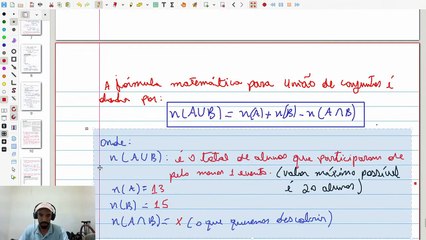 A fórmula matemática para União de conjuntos é
dada por:
n(A∪B) = n(A) + n(B) - n(A∩B)
Onde:
n(A∪B): é o total de alunos que participaram de
pelo menos 1 evento. (valor máximo possível
é 20 alunos)
n(A) = 13
n(B) = 15
n(A∩B) = x (o que queremos descobrir)